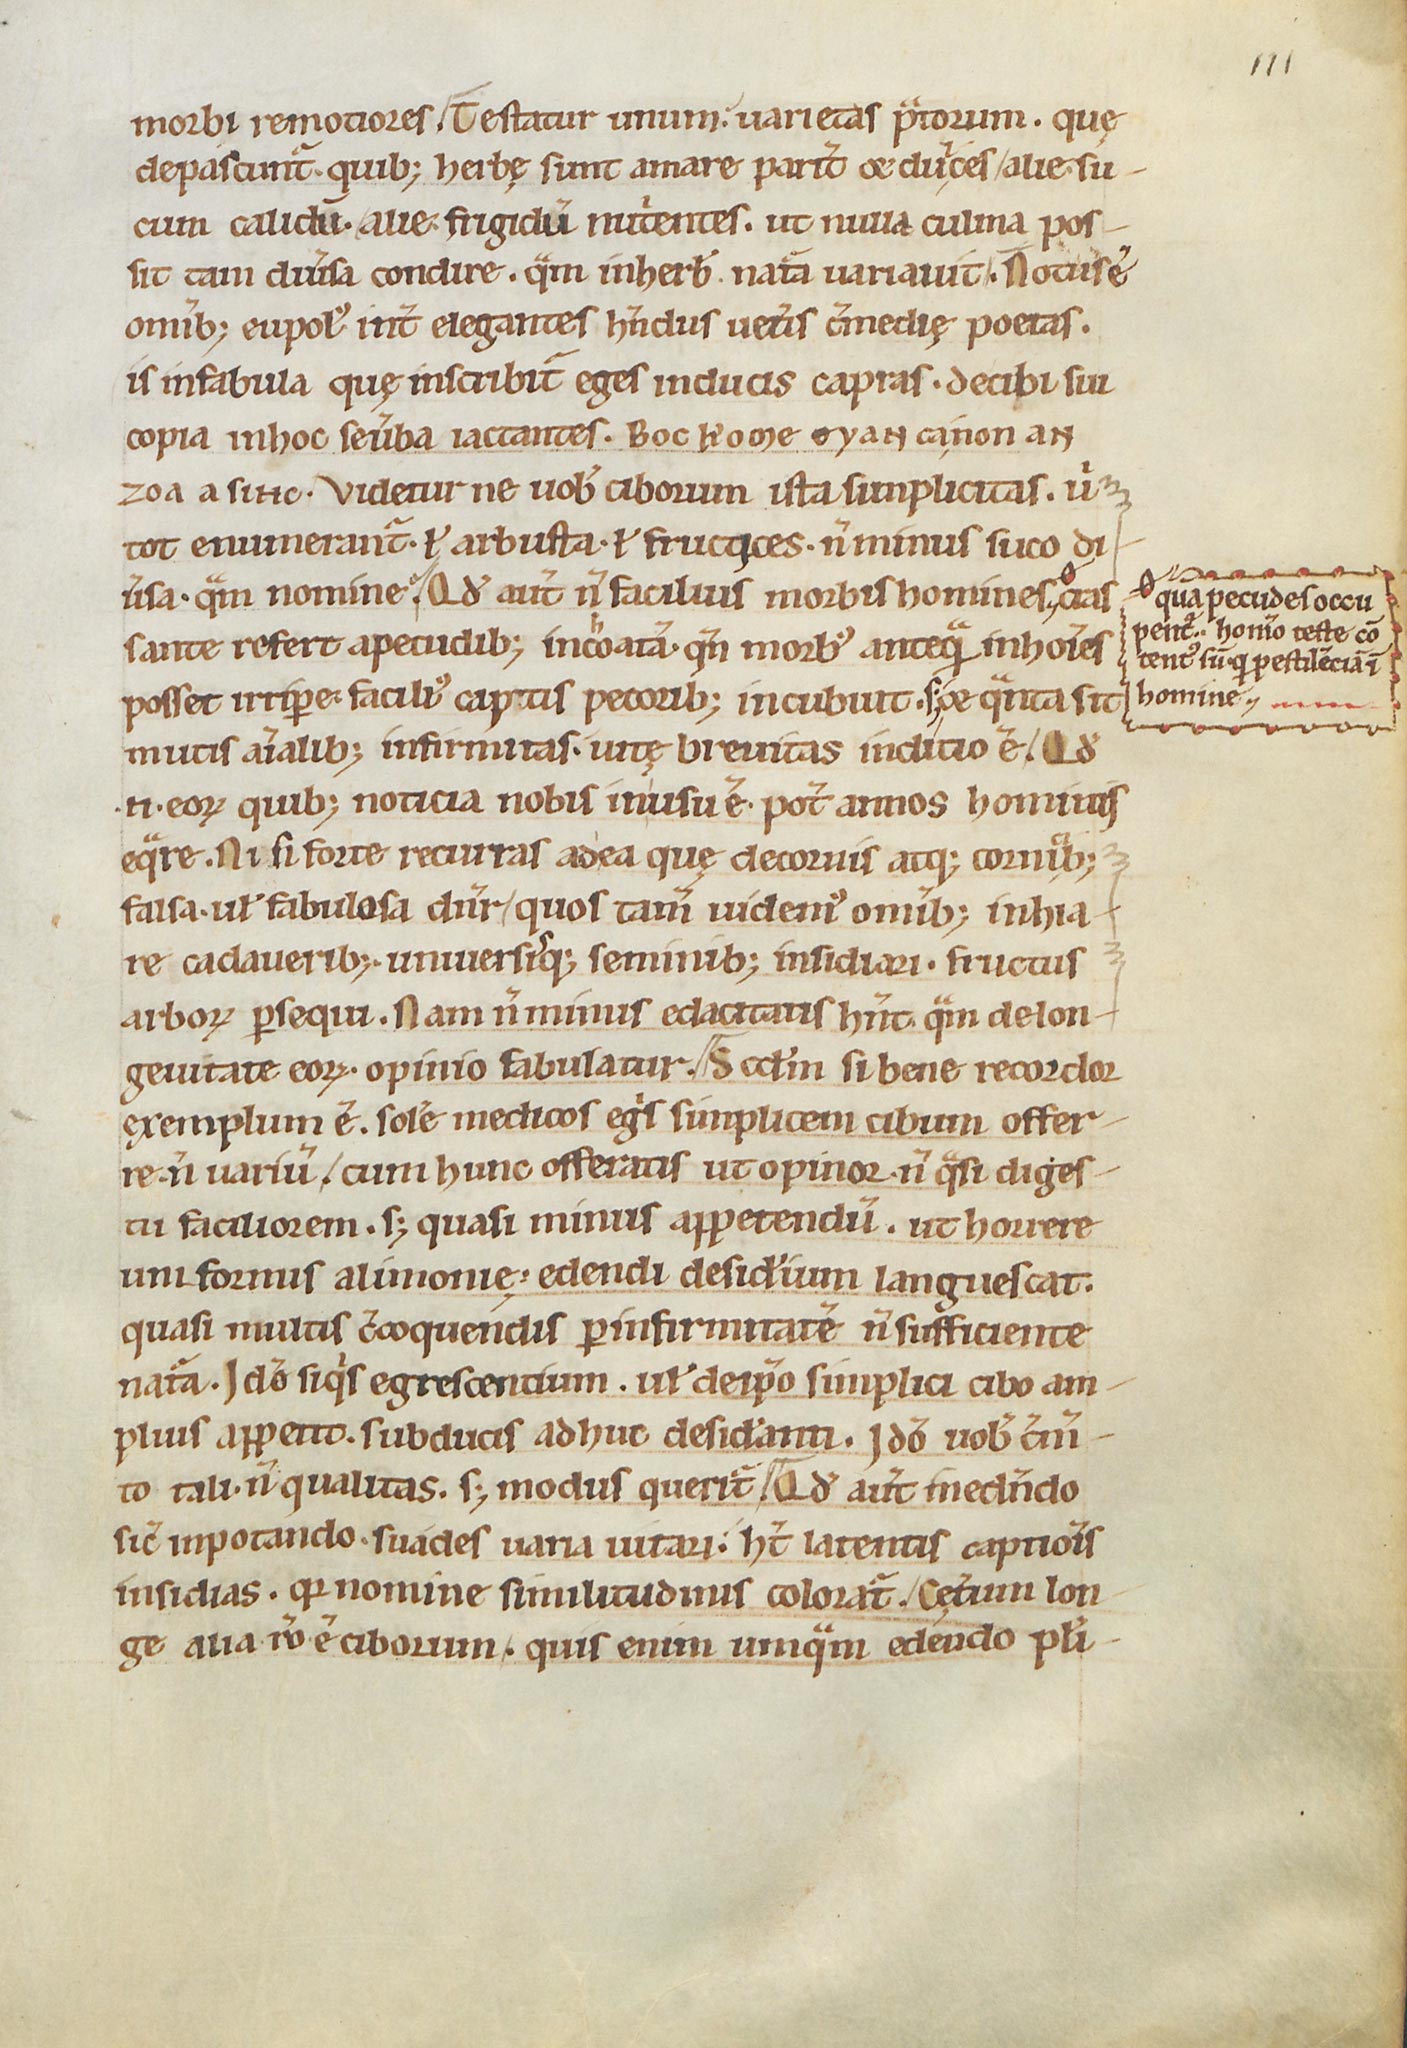 111
morbi remotiores. Testatur unum. uarietas p̃torum. quę
depascunt̃. quib; herbę sunt amare parit̃ & dulces / alie su-
cum calidũ. alie frigidũ nutrientes. ut nulla culina pos-
sit tam diũsa condire. q̃m in herb' nat̃a uariauit. Notus ẽ
omĩb; eupol' int̃ elegantes hñdus uet̃is c̃medię poetas.
is in fabula quę inscribit̃ eges inducis capras. de cibi sui
copia in hoc se ũba iactantes. Boc komе oyan canon an
zoa a sinc. Videtur ne uob' ciborum ista simplicitas. ũ
tot enumerant̃. ł arbusta. ł fructices. ñ minus suco di-
ũsa. q̃m nomine. Qđ aut̃ ñ facilius morbis homines, cras
sante refert a pecudib; inchoatã. qñ morb' anteq̃ in hoĩes
posset irripere. facili' captis pecorib; incubuit. s; & q̃nta sit
mutis aĩalib; infirmitas. uitę breuitas inditio ẽ. Qđ
.n. eoꝝ quib; noticia nobis in usu ẽ. pot̃ annos hominis
eq̃re. Ni si forte recurras ad ea quę de coruis atq; cornicib;
falsa. uł fabulosa dñr / quos tam̃ uidem' omĩb; inhia-
re cadauerib;. uniuersisq; seminib; insidiari. fructus
arboꝝ p̱sequi. Nam ñ minus edacitatis hñt. q̃m de lon-
geuitate eoꝝ. opinio fabulatur. Scđm si bene recordor
exemplum ẽ. solẽ medicos egris simplicem cibum offer-
re. ñ uariũ / cum hunc offeratis ut opinor. ñ q̃si diges-
tu faciliorem. s; quasi minus appetendũ. ut horrere
uniformis alimonię. edendi desiđium languescat.
quasi multis c̃coquendis p̱ infirmitatẽ ñ sufficiente
nat̃a. Iđo siq̃s egrescentium. uł de ip̃o simplici cibo am-
plius appetit. subducis adhuc desiđanti. Iđo uob' c̃m̃-
to tali. ñ qualitas. s; modus querit̃. Qđ aut̃ in edñdo
sic̃ in potando. suades uaria uitari. ht̃ latentis captiõis
insidias. qꝛ nomine similitudinis colorat̃. Cęt̃um lon
ge alia rõ ẽ ciborum. quis enim umq̃m edendo pl'i-
quã pecudes occu
pent̃. homo teste cõ
tenti sũ. q̃ pestilẽciã ĩ
homine.